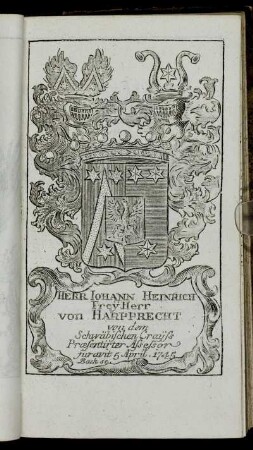 HERR IOHANN HEINRICH
Frey Herr
von HARPPRECHT
von dem
Schwäbischen Crayss
Præsentirter Assessor
juravit 5 April. 1745
Bock sc.